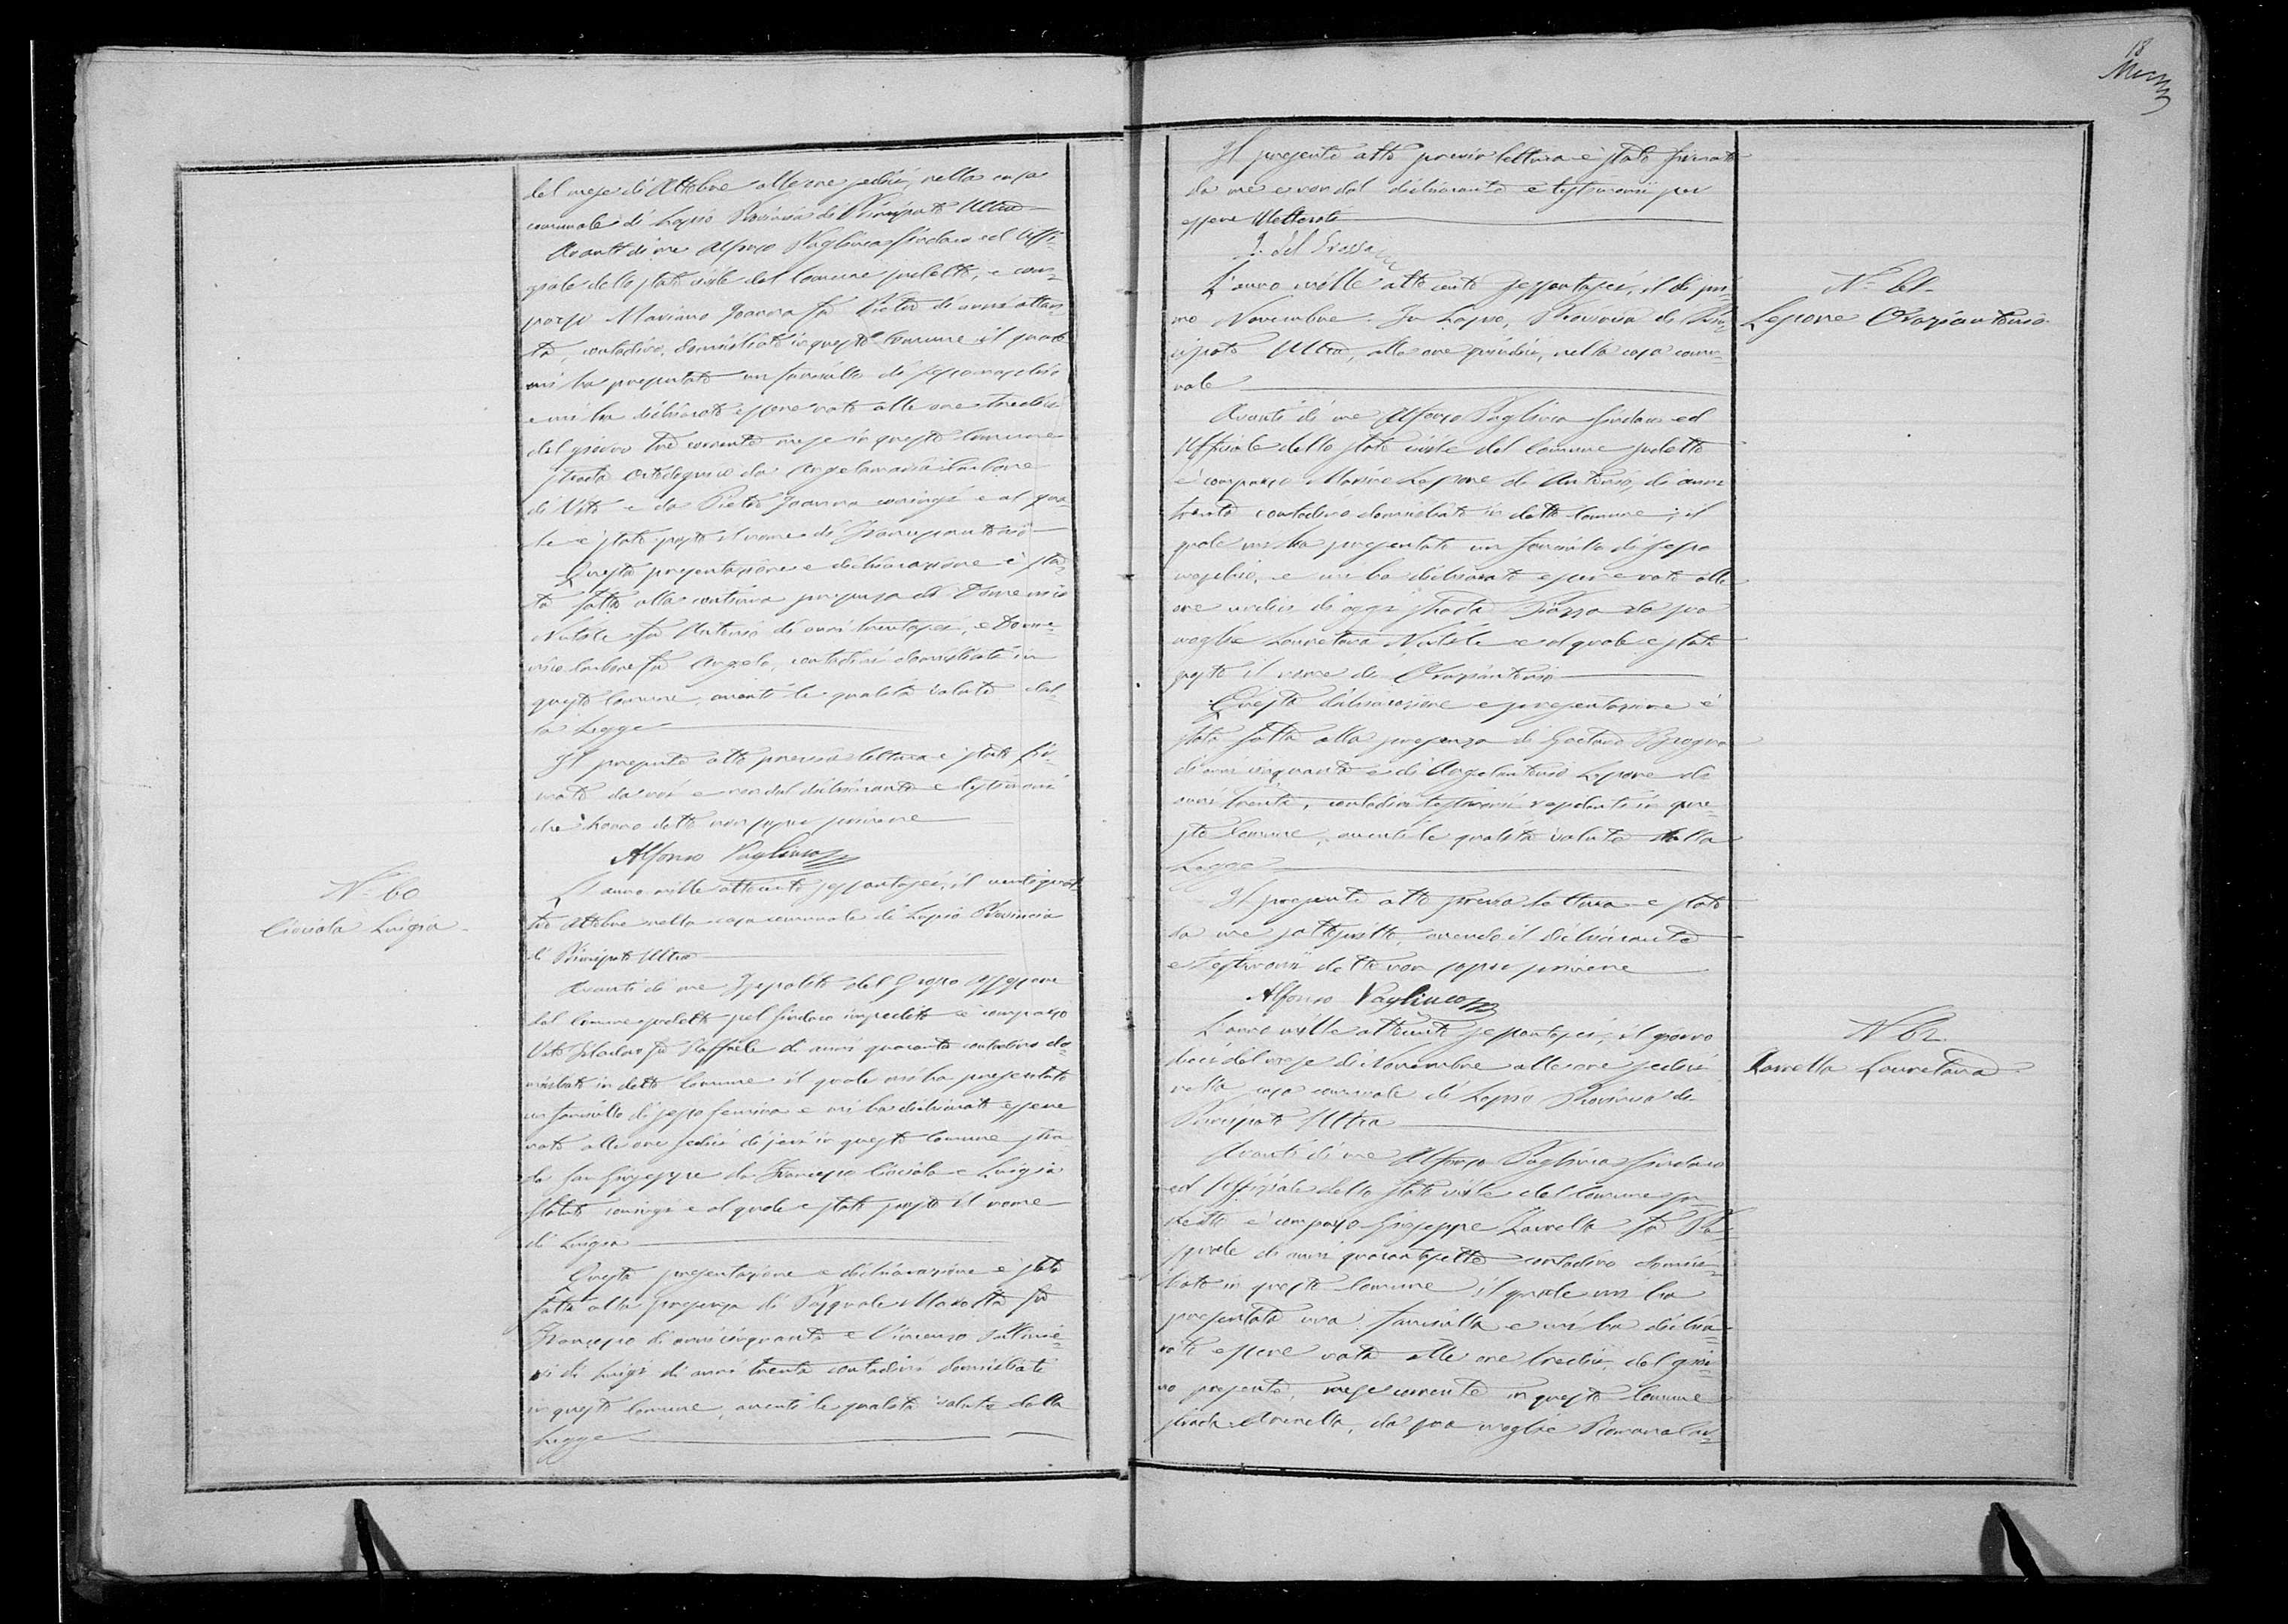 del mese di Ottobre alle ore sedici, nella casa
comunale di Lapio Provincia di Principato Ultra
Avanti di me Alfonso Pagliuca Sindaco ed Uffi-
ziale dello stato civile del Comune sudetto, è com-
parso Mariano Joanna fu Pietro di anni ottan-
ta, contadino, domiciliato in questo Comune il quale
mi ha presentato un fanciullo di sesso maschio
e mi ha dichiarato essere nato alle ore tredici
del giorno tre corrente mese in questo Comune
strada da Angelamaria Carbone
di Vito e da Pietro Joanna coniugi e al qua-
le è stato posto il nome di Francescantonio
Questa presentazione e dichiarazione è sta-
ta fatta alla continua presenza di Domenico
Nutile fu Antonio di anni trentasei, e Dome-
nico Carbone fu Angelo, contadini domiciliati in
questo Comune, aventi le qualità volute dal-
la Legge
Il presente atto previa lettura è stato fir-
mato da noi e non dal dichiarante e testimoni
che hanno detto non sapere scrivere
Alfonso Pagliuca
N.º 60
Ciociola Luigia
L'anno mille ottocento sessantasei, il ventiquat-
tro Ottobre nella casa comunale di Lapio Provincia
di Principato Ultra
Avanti di me Ippolito del Grosso Assessore
del Comune sudetto pel Sindaco impedito è comparso
Vito fu Raffaele di anni quaranta contadino do-
miciliato in detto Comune il quale mi ha presentato
un fanciullo di sesso femina e mi ha dichiarato essere
nato alle ore sedici di jeri in questo Comune stra-
da San Giuseppe da Francesco Ciociola e Luigia
coniugi e al quale è stato posto il nome
di Luigia
Questa presentazione e dichiarazione è stata
fatta alla presenza di Pasquale fu
Francesco di anni cinquanta e Vincenzo
di Luigi di anni trenta contadini domiciliati
in questo Comune, aventi le qualità volute dalla
Legge
18
Il presente atto previa lettura è stato firmato
da me e non dal dichiarante e testimoni per
essere illetterati
I. del Grosso
N.º 61
Lepore Oraziantonio
L'anno mille ottocento sessantasei, il di pri-
mo Novembre. In Lapio, Provincia di Prin-
cipato Ultra, alle ore quindici, nella casa comu-
nale
Avanti di me Alfonso Pagliuca Sindaco ed
Uffiziale dello stato civile del Comune sudetto
è comparso Lepore di Antonio, di anni
trenta contadino domiciliato in detto Comune; il
quale mi ha presentato un fanciullo di sesso
maschio, e mi ha dichiarato essere nato alle
ore undici di oggi strada Piazza da sua
moglie Lauretana Nutile e al quale è stato
posto il nome di Oraziantonio
Questa dichiarazione e presentazione è
stata fatta alla presenza di Gaetano
di anni cinquanta e di Angelantonio Lepore di
anni trenta, contadini testimoni residenti in que-
sto Comune, aventi le qualità volute dalla
Legge
Il presente atto previa lettura è stato
da me sottoscritto, avendo il dichiarante
e testimoni detto non sapere scrivere
Alfonso Pagliuca
N. 62.
Zarrella Lauretana
L'anno mille ottocento sessantasei, il giorno
dieci del mese di Novembre alle ore sedici
nella casa comunale di Lapio Provincia di
Principato Ultra
Avanti di me Alfonso Pagliuca Sindaco
ed Uffiziale dello stato civile del Comune su-
detto è comparso Giuseppe Zarrella fu Pa-
squale di anni quarantasette contadino domici-
liato in questo Comune il quale mi ha
presentata una fanciulla e mi ha dichia-
rato essere nata alle ore tredici del gior-
no presente, mese corrente in questo Comune
strada, da sua moglie Romana Car-